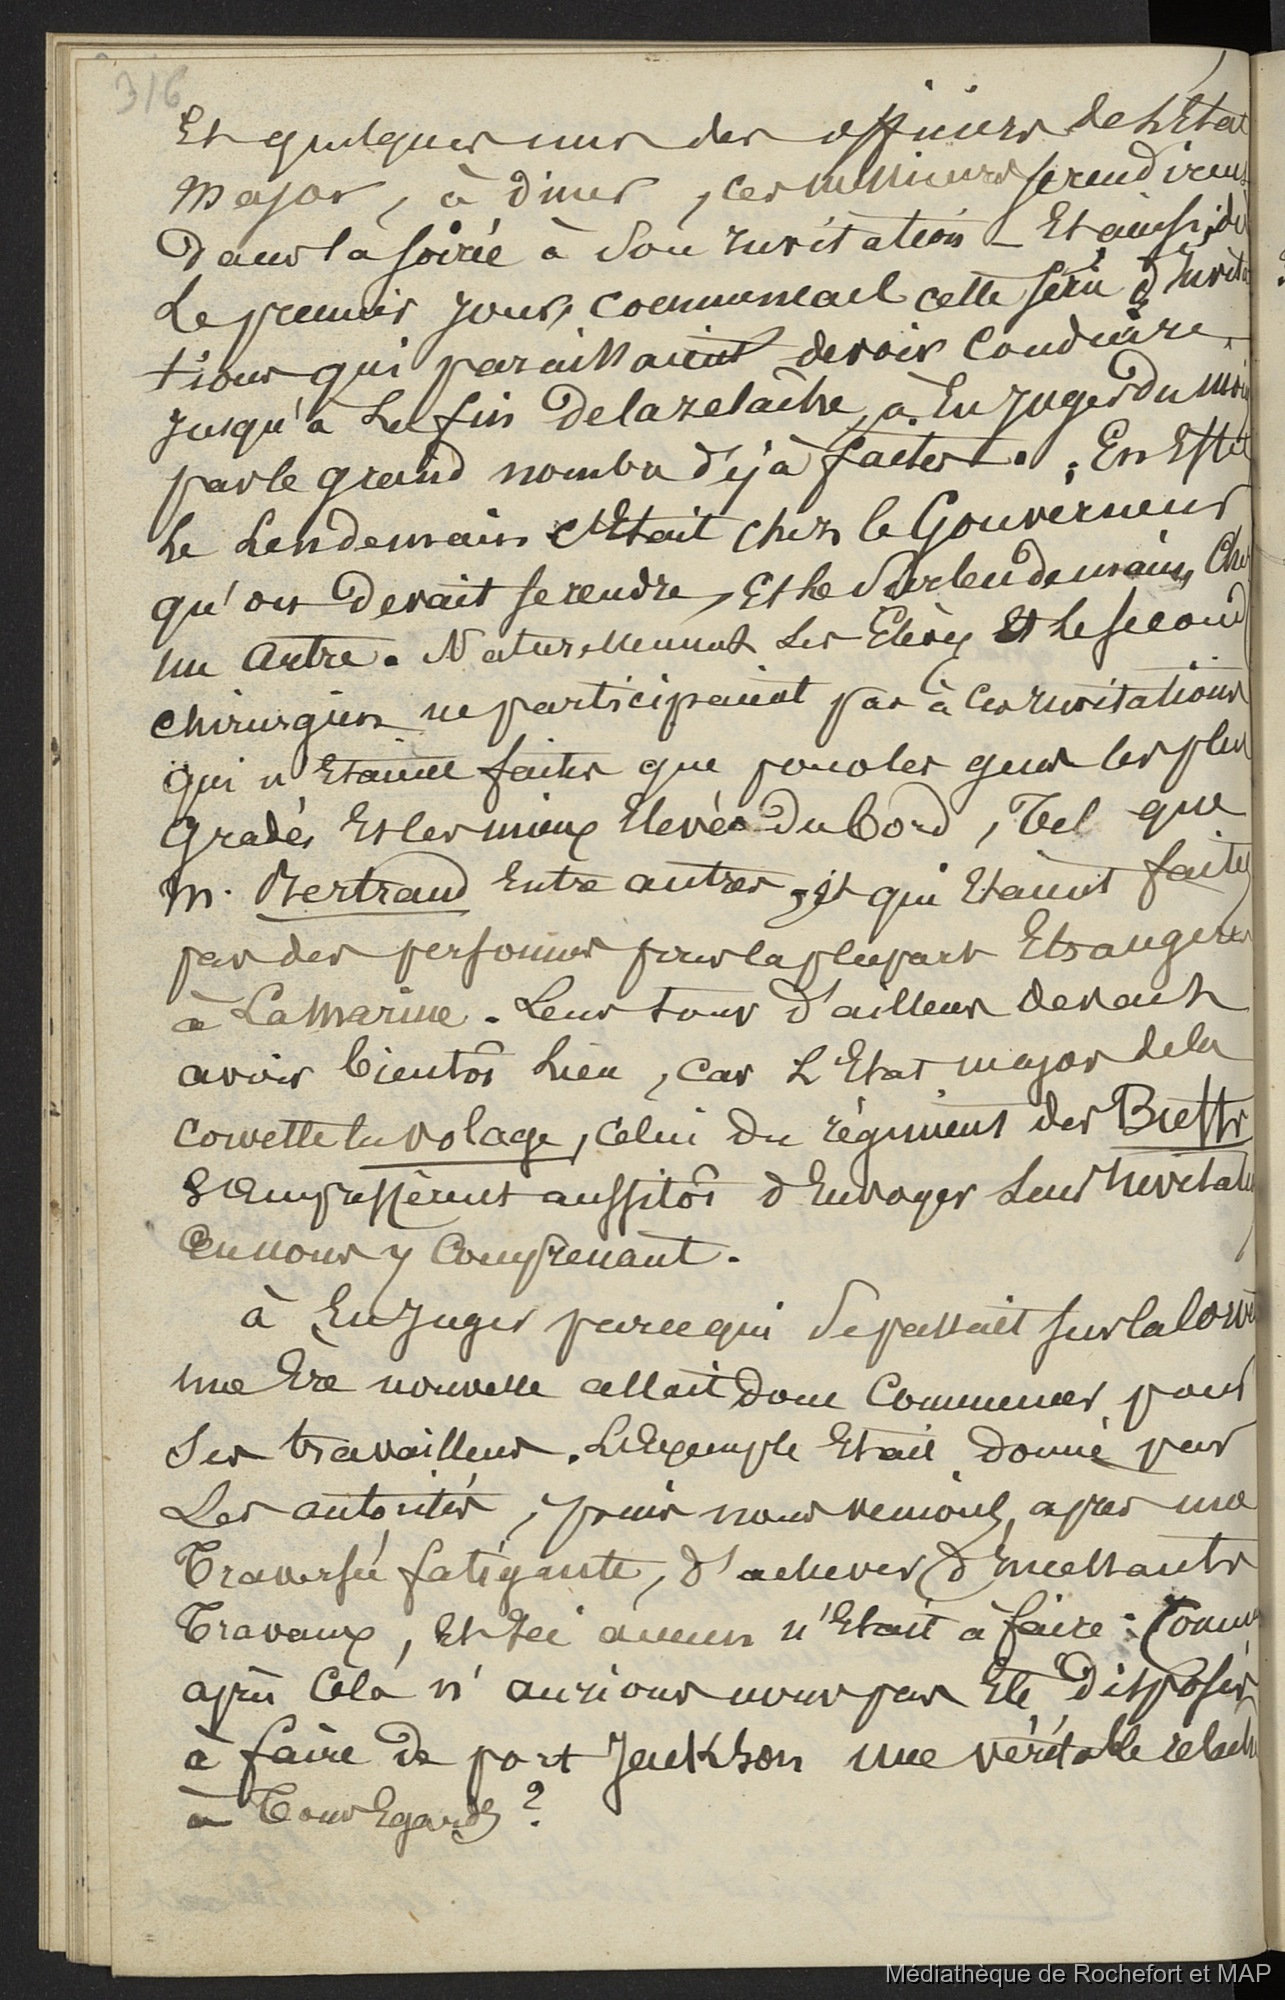 316
Et quelques uns des officiers de L'Etat
major, à diner, ces messieurs se rendirent
dans la soirée à son invitation _ Et ainsi, dès
Le premier jour, commencait cette série d'Invita
tions qui paraissaient devoir conduire
jusqu'à La fin de la relâche, à En juger du moins
par le grand nombre déjà faites. En Effet
Le Lendemain c'Etait chez le Gouverneur
qu'on devait se rendre, Et le Surlendemain, Chez
un Autre. Naturellement Les Elèves Et le second
chirurgien ne participaient pas à ces invitations
qui n'Etaient faites que pour les gens les plus
gradés Et les mieux Elevés du bord, Tel que
M. Bertrand Entre autres, Et qui Etaient faites
par des personnes pour la plupart Etrangères
à La Marine. Leur tour d'ailleurs devait
avoir bientôt Lieu, car L'Etat major de la
corvette la volage, celui du régiment des Bieffs
s'Empressèrent aussitôt d'Envoyer Leur Invitation
En nous y Comprenant.
à En juger par ce qui se passait sur la Corvette
une Ere nouvelle allait donc Commencer pour
Ses travailleurs. L'Exemple Etait donné par
Les autorités, puis nous venions, après une
Traversée fatigante, d'achever d'incessants
Travaux, Et Ici aucun n'Etait à faire : Comment
après Cela n'aurions nous pas Eté disposés
à faire de port Jackson une véritable relache
à Tous Egards ?
Médiathèque de Rochefort et MAP